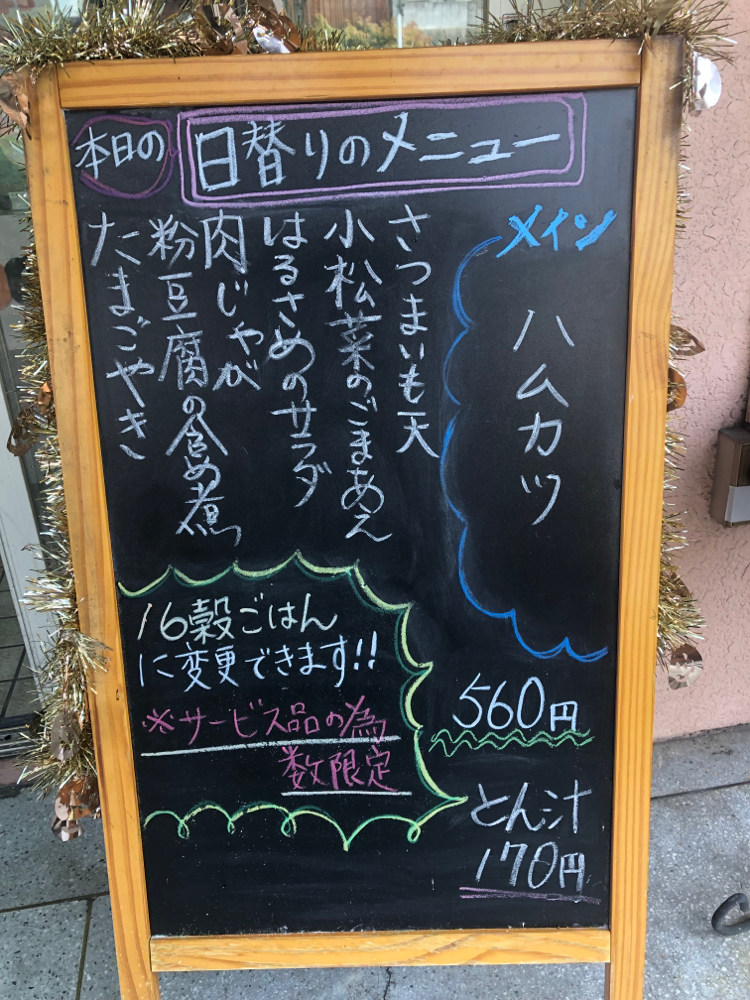 本日の
日替りのメニュー
メイン
ハムカツ
さつまいも天
小松菜のごまあえ
はるさめのサラダ
肉じゃが
粉豆腐の含め煮
たまごやき
16穀ごはん
に変更できます!!
※サービス品の為
数限定
560円
とん汁
170円